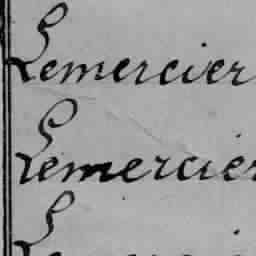 Lemercier
Lemercier